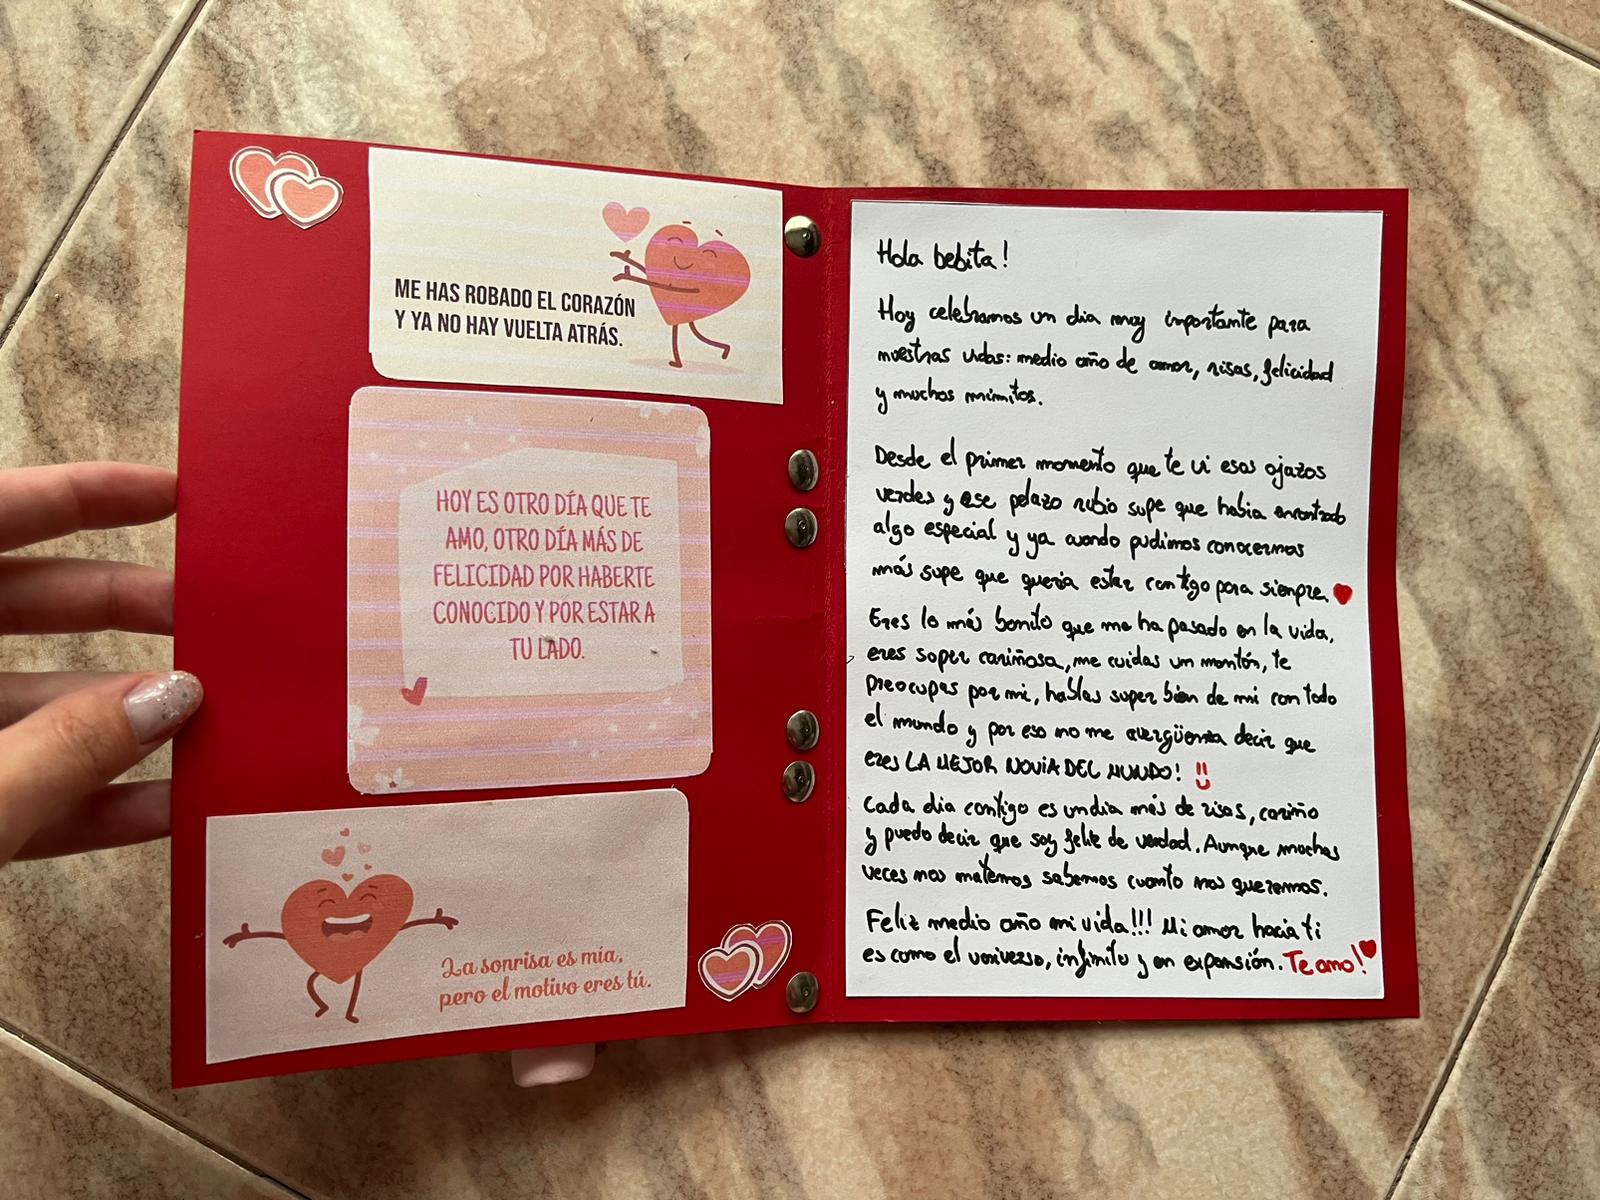 ME HAS ROBADO EL CORAZÓN
Y YA NO HAY VUELTA ATRÁS.
HOY ES OTRO DÍA QUE TE
AMO, OTRO DÍA MÁS DE
FELICIDAD POR HABERTE
CONOCIDO Y POR ESTAR A
TU LADO.
La sonrisa es mía,
pero el motivo eres tú.
Hola bebita!
Hoy celebramos un dia muy importante para
nuestras vidas: medio año de amor, risas, felicidad
y muchos mimitos.
Desde el primer momento que te vi esos ojazos
verdes y ese pelazo rubio supe que habia encontrado
algo especial y ya cuando pudimos conocernos
más supe que queria estar contigo para siempre.
Eres lo más bonito que me ha pasado en la vida,
eres super cariñosa, me cuidas un montón, te
preocupas por mi, hablas super bien de mi con todo
el mundo y por eso no me avergüenza decir que
eres LA MEJOR NOVIA DEL MUNDO!
Cada dia contigo es un dia más de risas, cariño
y puedo decir que soy feliz de verdad. Aunque muchas
veces nos matemos sabemos cuanto nos queremos.
Feliz medio año mi vida!!! Mi amor hacia ti
es como el universo, infinito y en expansión. Te amo!